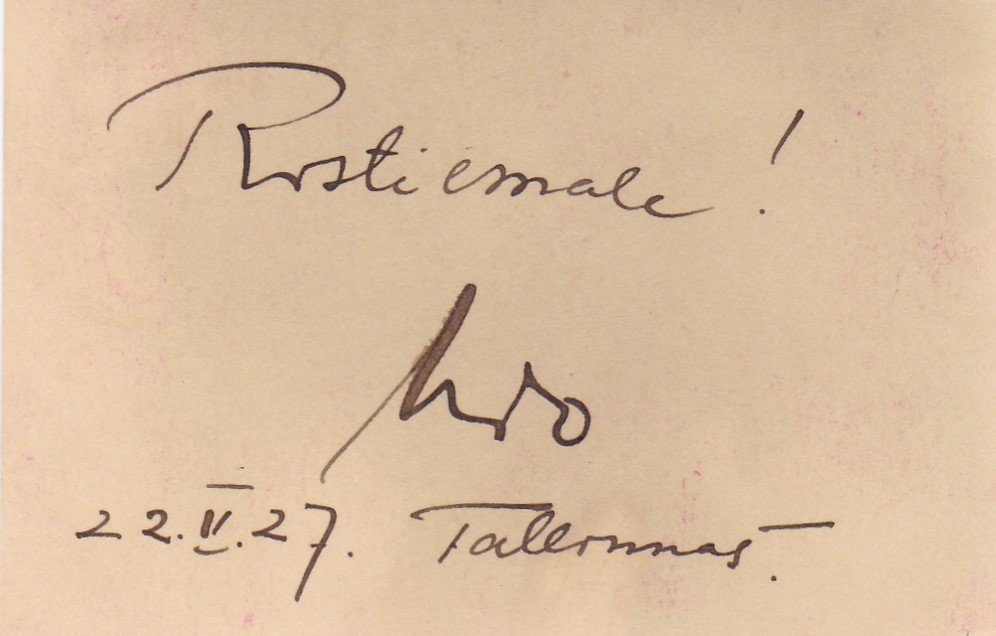 Ristiemale !
22.II.27. Tallinnas.